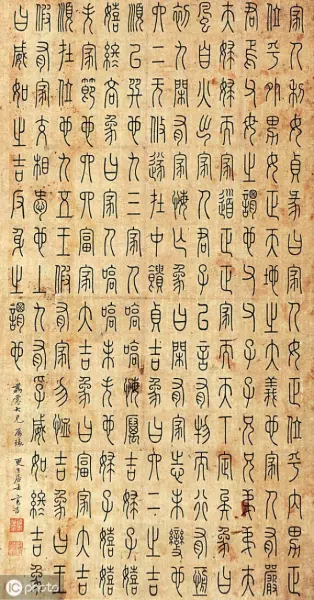 家人利女貞彖曰家人女正位乎內男正
位乎外男女正天地之大義也家人有嚴
君焉父母之謂也父父子子兄兄弟弟夫
夫婦婦而家道正正家而天下定矣象曰
風自火出家人君子以言有物而行有恆
初九閑有家悔亡象曰閑有家志未變也
六二无攸遂在中饋貞吉象曰六二之吉
順以巽也九三家人嗃嗃悔厲吉婦子嘻
嘻終吝象曰家人嗃嗃未失也婦子嘻嘻
失家節也六四富家大吉象曰富家大吉
順在位也九五王假有家勿恤吉象曰王
假有家交相愛也上九有孚威如終吉象
曰威如之吉反身之謂也